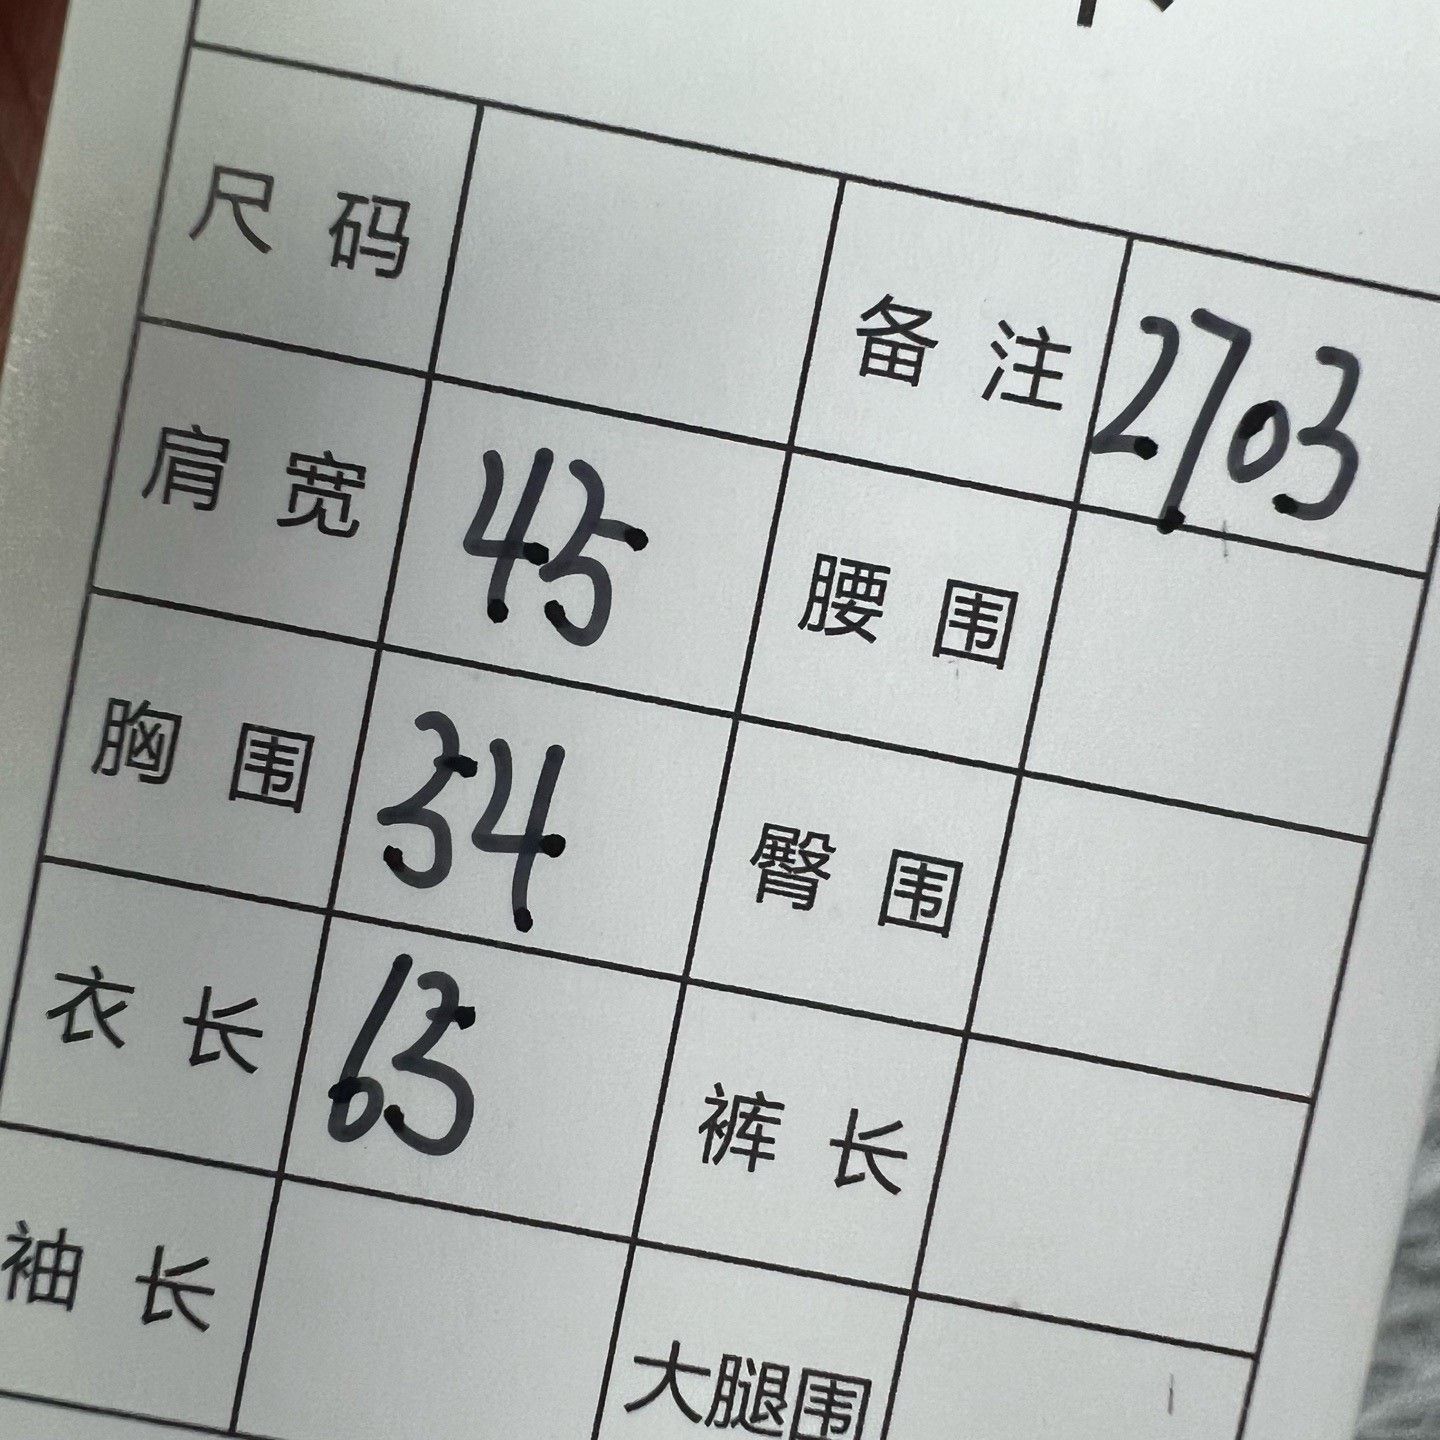 尺码 备注 2703
肩宽 45 腰围
胸围 54 臀围
衣长 65 裤长
袖长 大腿围